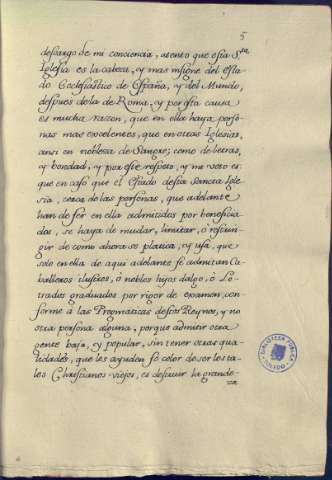 5
descargo de mi conciencia, atento que esta S.ta
Iglesia es la cabeza, y mas insigne del esta-
do Ecclesiástico de España, y del Mundo,
despues de la de Roma, y por esta causa
es mucha razon, que en ella haya perso-
nas mas excelentes, que en otras Iglesias,
ansi en nobleza de Sangre, como de letras,
y bondad, y por este respeto, y me voto es
que en caso que el Estado desta Sancta Igle-
sia, cerca de las personas, que adelante
han de ser en ella admitidas por beneficia-
dos, se haya de mudar, limitar, ó restrin-
gir de como ahora se platica, y usa, que
solo en ella de aqui adelante se admitan Ca-
balleros ilustres, ó nobles hijos dalgo, ó Le-
trados graduados por rigor de examen, con-
forme á las Pragmaticas destos Reynos, y no
otra persona alguna, porque admitir otra
gente baja, y popular, sin tener otras qua-
lidades, que les ayuden so color de ser los ta-
les Christianos viejos, es destruir la grande-
za
BIBLIOTECA PUBLICA
TOLEDO